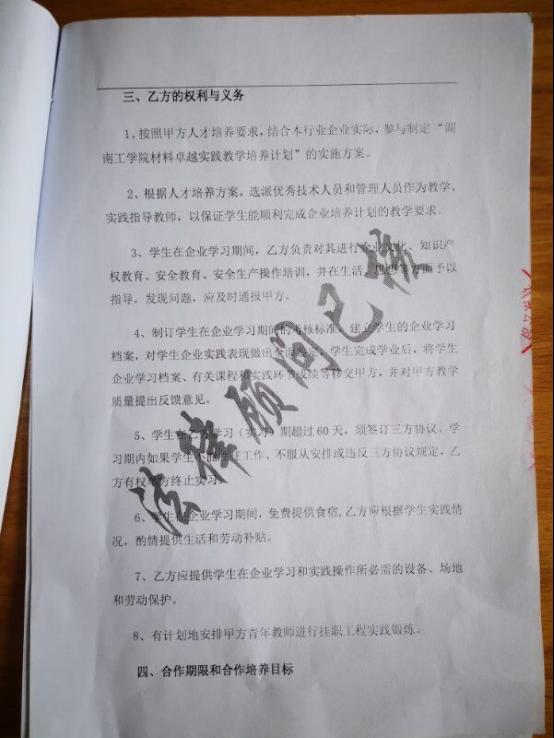 三、乙方的权利与义务
1、按照甲方人才培养要求，结合本行业企业实际，参与制定“湖
南工学院材料卓越实践教学培养计划”的实施方案。
2、根据人才培养方案，选派优秀技术人员和管理人员作为教学、
实践指导教师，以保证学生能顺利完成企业培养计划的教学要求。
3、学生在企业学习期间，乙方负责对其进行企业文化、知识产
权教育、安全教育、安全生产操作培训，并在生活、思想等方面予以
指导，发现问题，应及时通报甲方。
4、制订学生在企业学习期间的考核标准，建立学生的企业学习
档案，对学生企业实践表现做出全面鉴定，学生完成学业后，将学生
企业学习档案、有关课程和实践环节成绩等移交甲方，并对甲方教学
质量提出反馈意见。
5、学生在乙方学习（实习）期超过 60 天，须签订三方协议。学
习期内如果学生不能胜任工作、不服从安排或违反三方协议规定，乙
方有权单方终止实习。
6、学生在企业学习期间，免费提供食宿，乙方应根据学生实践情
况，酌情提供生活和劳动补贴。
7、乙方应提供学生在企业学习和实践操作所必需的设备、场地
和劳动保护。
8、有计划地安排甲方青年教师进行挂职工程实践锻炼。
四、合作期限和合作培养目标
法律顾问已核